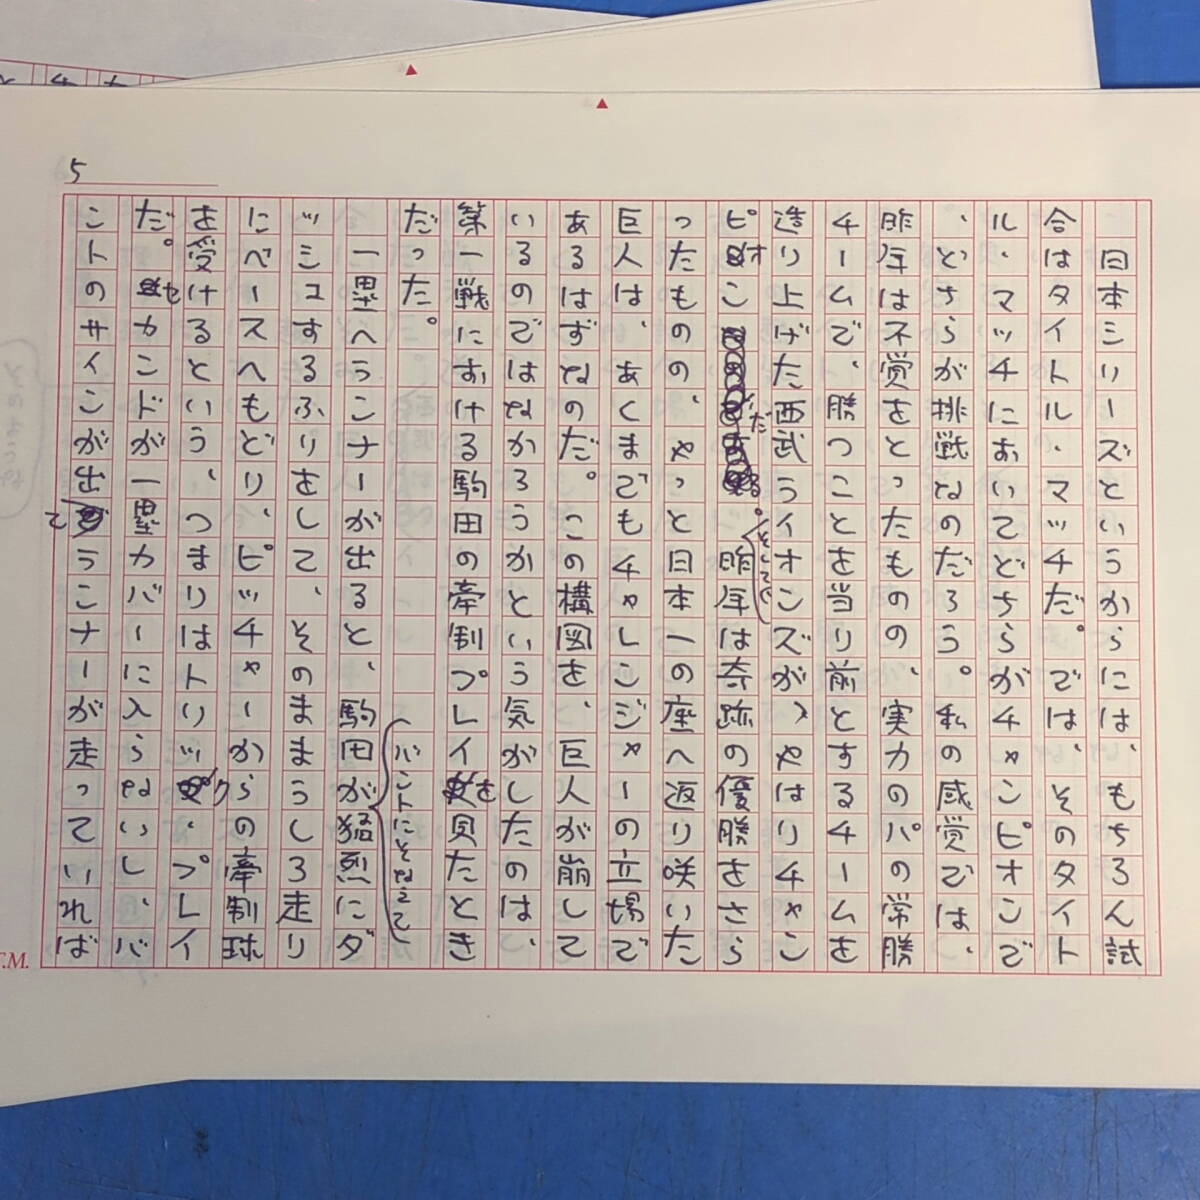 5
日本シリーズというからには、もちろん試
合はタイトル・マッチだ。では、そのタイト
ル・マッチにおいてどちらがチャンピオンで
、どちらが挑戦なのだろう。私の感覚では、
昨年は不覚をとったものの、実力のパの常勝
チームで、勝つことを当り前とするチームを
造り上げた西武ライオンズが、やはりチャン
ピオンだ。そして、昨年は奇跡の優勝をさら
ったものの、やっと日本一の座へ返り咲いた
巨人は、あくまでもチャレンジャーの立場で
あるはずなのだ。この構図を、巨人が崩して
いるのではなかろうかという気がしたのは、
第一戦における駒田の牽制プレイを見たとき
だった。
バントにそなえて
一塁へランナーが出ると、駒田が猛烈にダ
ッシュするふりをして、そのままうしろ走り
にベースへもどり、ピッチャーからの牽制球
を受けるという、つまりはトリック・プレイ
だ。セカンドが一塁カバーに入らないし、バ
ントのサインが出てランナーが走っていれば
T.M.